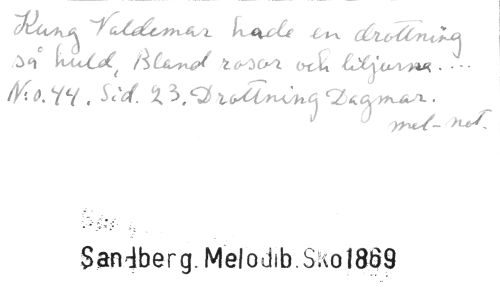 Kung Valdemar hade en drottning
så huld, Bland rosor och liljorna....
N:o. 44. Sid. 23. Drottning Dagmar.
mel-not.
Sandberg. Melodib. Sko1869